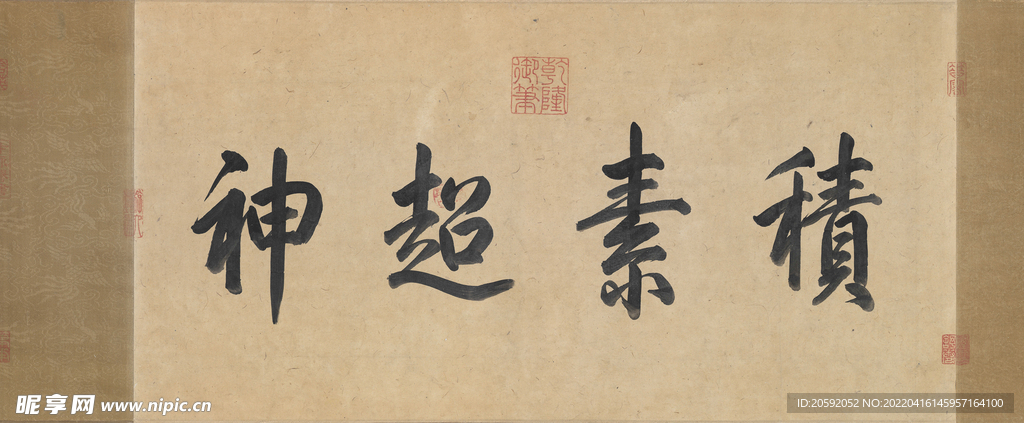 積素超神
乾隆御筆
昵享网 www.nipic.cn
ID:20592052 NO:20220416145957164100